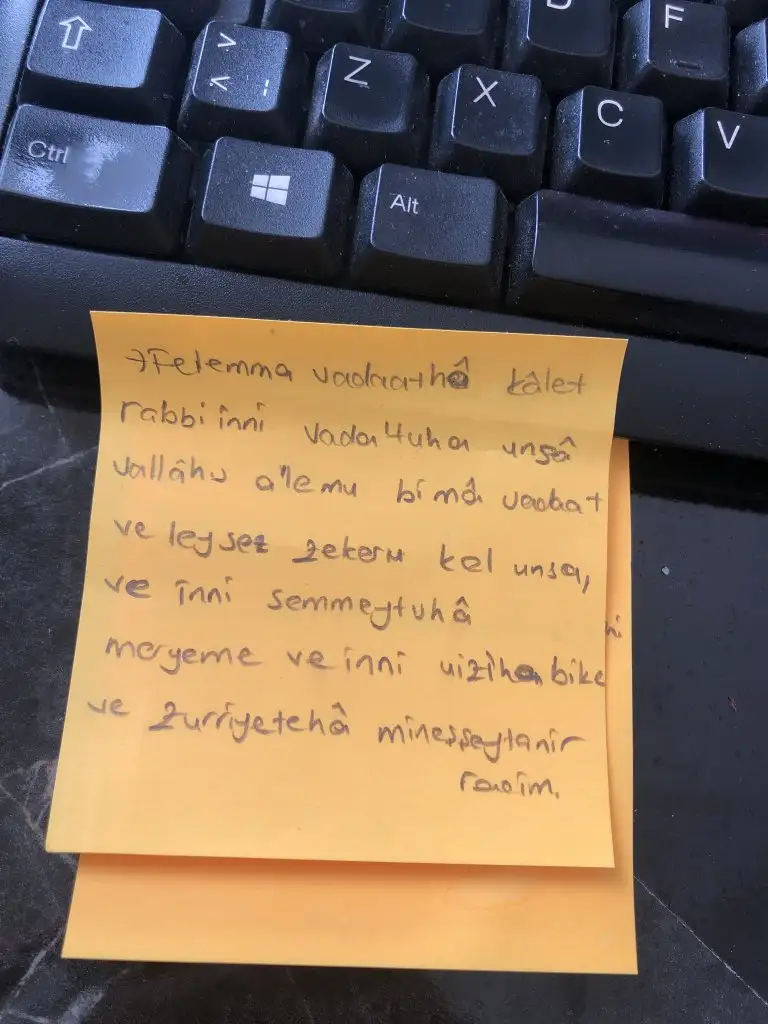 D F
> < ¦ Z X C V
Ctrl Alt
→Felemma vadaathâ kâlet
rabbi înni vada'tuha unsâ
vallâhu a'lemu bi mâ vadaat
ve leysez zekeru kel unsa,
ve înni semmeytuhâ
meryeme ve inni uizîha bike
ve zurriyetehâ mineşşeytanir
racim.